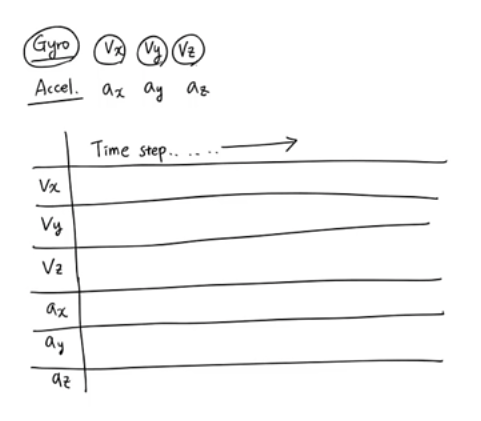 Gyro Vx Vy Vz
Accel. ax ay az
Time step......
Vx
Vy
Vz
ax
ay
az